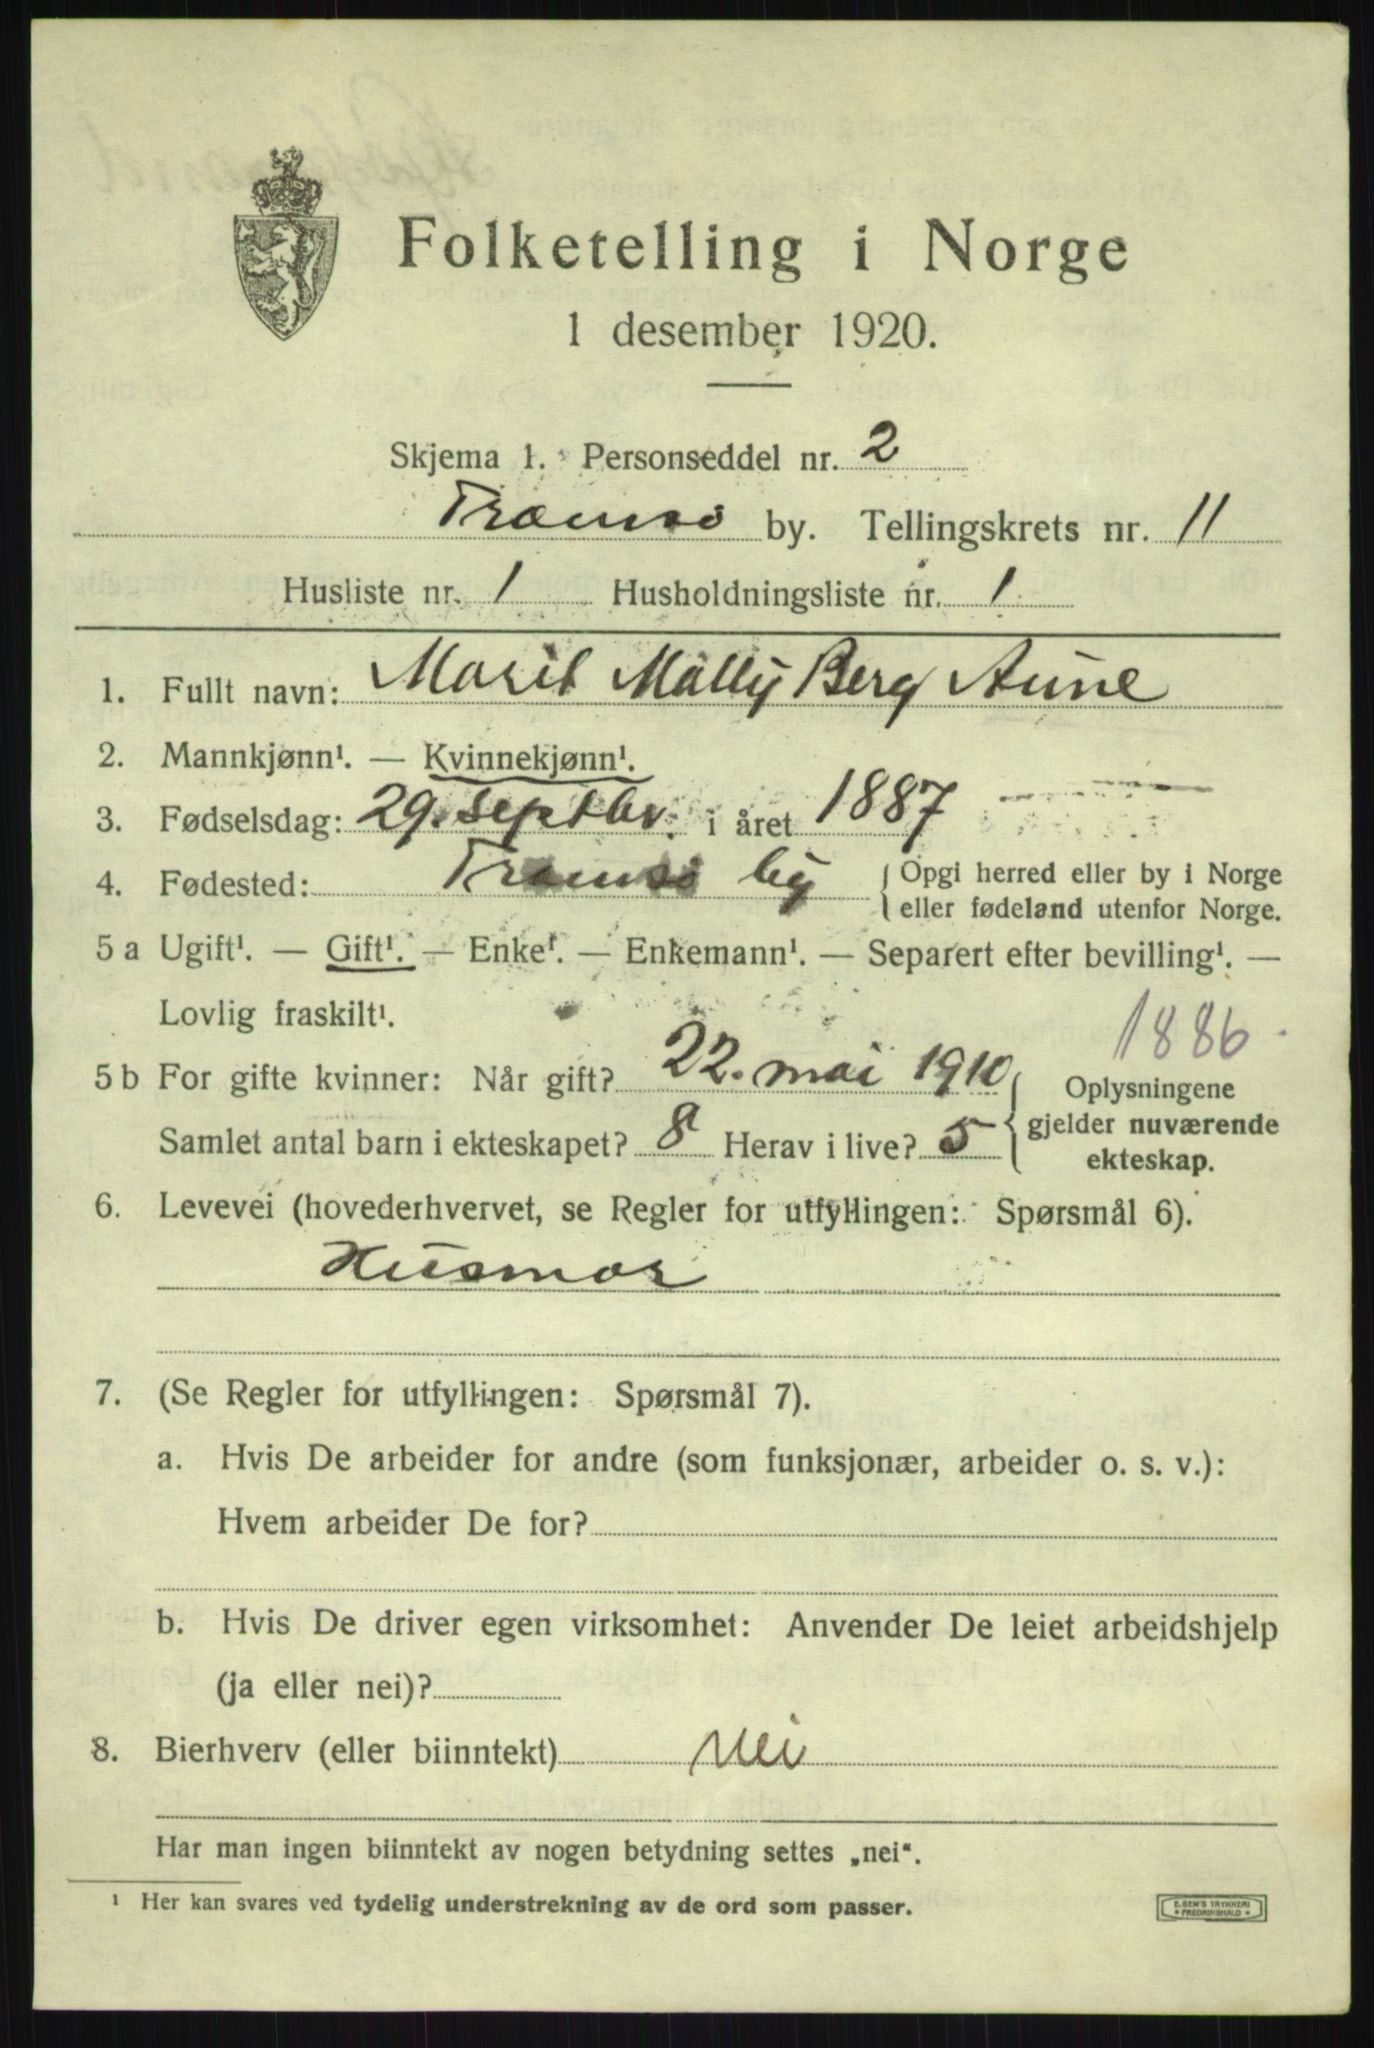 Folketelling i Norge
1 desember 1920.
Skjema 1. Personseddel nr. 2
Tromsø by. Tellingskrets nr. 11
Husliste nr. 1 Husholdningsliste nr. 1
1. Fullt navn: Marit Mally Berg Aune
2. Mannkjønn¹. — Kvinnekjønn¹.
3. Fødselsdag: 29. septbr. i året 1887
4. Fødested: Tromsø by { Opgi herred eller by i Norge
eller fødeland utenfor Norge.
5 a Ugift¹. — Gift¹. — Enke¹. — Enkemann¹. — Separert efter bevilling¹. —
Lovlig fraskilt¹.
1886
5 b For gifte kvinner: Når gift? 22. mai 1910
Samlet antal barn i ekteskapet? 8 Herav i live? 5
{ Oplysningene
gjelder nuværende
ekteskap.
6. Levevei (hovederhvervet, se Regler for utfyllingen: Spørsmål 6).
Husmor
7. (Se Regler for utfyllingen: Spørsmål 7).
a. Hvis De arbeider for andre (som funksjonær, arbeider o. s. v.):
Hvem arbeider De for?
b. Hvis De driver egen virksomhet: Anvender De leiet arbeidshjelp
(ja eller nei)?
8. Bierhverv (eller biinntekt) Nei
Har man ingen biinntekt av nogen betydning settes „nei".
¹ Her kan svares ved tydelig understrekning av de ord som passer.
E. SEM'S TRYKKERI
* FREDRIKSHALD *